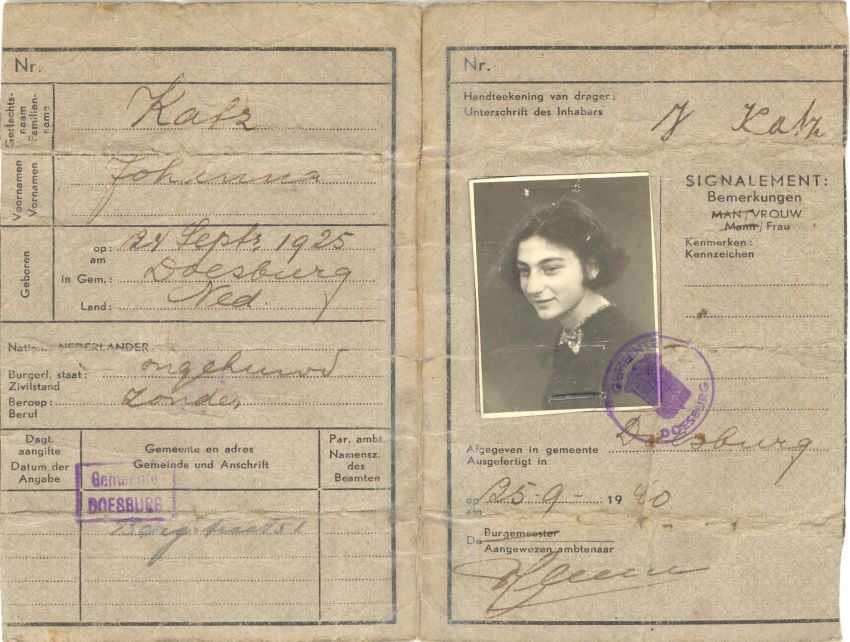 Nr.
Geslachts-
naam
Familien-
name
Katz
Voornamen
Vornamen
Johanna
Geboren
op: 24 Septr 1925
am
in Gem.: Doesburg
Land: Ned.
Nation. NEDERLANDER
Burgerl. staat: ongehuwd
Zivilstand
Beroep: zonder
Beruf
Dagt.
aangifte
Datum der
Angabe
Gemeente en adres
Gemeinde und Anschrift
Par. ambt.
Namensz.
des
Beamten
Gemeente
DOESBURG
Nr.
Handteekening van drager:
Unterschrift des Inhabers
J Katz
SIGNALEMENT:
Bemerkungen
MAN/VROUW
Mann/Frau
Kenmerken:
Kennzeichen
GEMEENTE
DOESBURG
Afgegeven in gemeente Doesburg
Ausgefertigt in
op 25-9-1940
am
De Burgemeester
Aangewezen ambtenaar